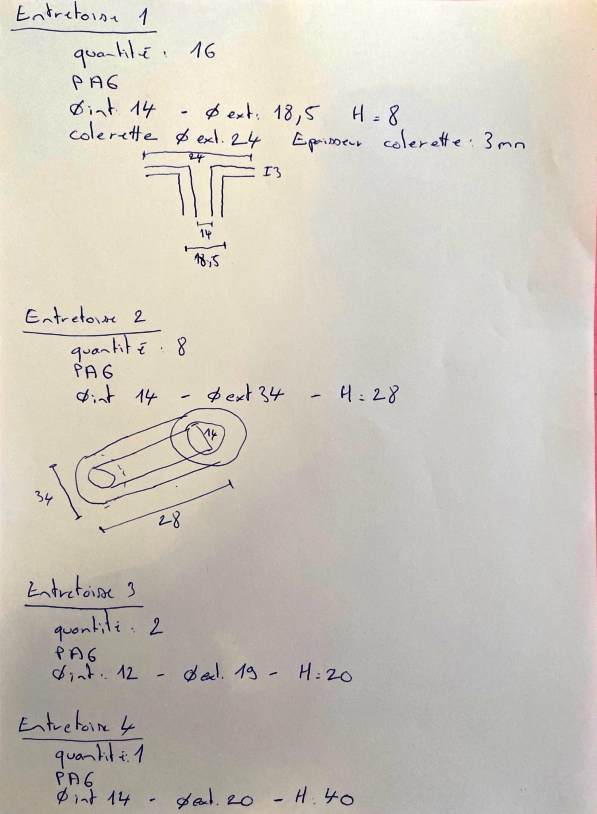 Entretoise 1
quantité : 16
PA6
Øint 14 - Ø ext. 18,5 H = 8
colerette Ø ext. 24 Epaisseur colerette : 3mm
24
I3
14
18,5
Entretoise 2
quantité : 8
PA6
Øint 14 - Øext 34 - H = 28
14
34
28
Entretoise 3
quantité : 2
PA6
Øint. 12 - Øext. 19 - H = 20
Entretoise 4
quantité : 1
PA6
Øint 14 - Øext. 20 - H. 40